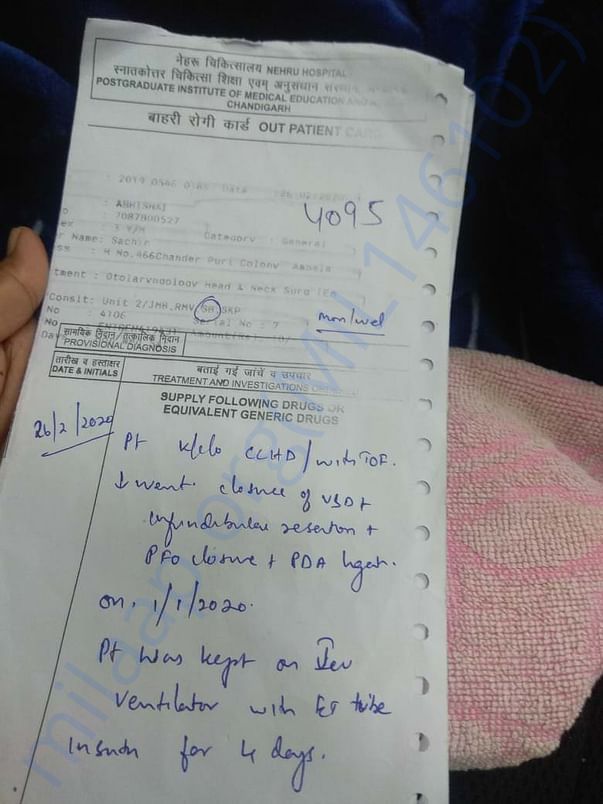 नेहरू चिकित्सालय NEHRU HOSPITAL
स्नातकोत्तर चिकित्सा शिक्षा एवम् अनुसंधान संस्थान
POSTGRADUATE INSTITUTE OF MEDICAL EDUCATION AND
CHANDIGARH
बाहरी रोगी कार्ड OUT PATIENT CARD
4095
: ABHISHAI
7087800527
: 3 Y/M Category : General
Name: Sachin
: H No.466Chander Puri Colony Ambala
tment : Otolaryngology Head & Neck Surg (En
Conslt: Unit 2/JMB,RMV,SB,SKP
mon/wed
No : 4106 Serial No : 7
सामयिक निदान/तत्कालिक निदान
PROVISIONAL DIAGNOSIS
तारीख व हस्ताक्षर
DATE & INITIALS
बताई गई जांचें व उपचार
TREATMENT AND INVESTIGATIONS
SUPPLY FOLLOWING DRUGS OR
EQUIVALENT GENERIC DRUGS
26/2/2020
Pt k/c/o CCHD/with TOF.
went closure of VSD +
infundibular resection +
PFO closure + PDA ligat.
on 1/1/2020.
Pt was kept on
ventilator with ET tube
insitu for 4 days.
milaap.org(MIL146102)